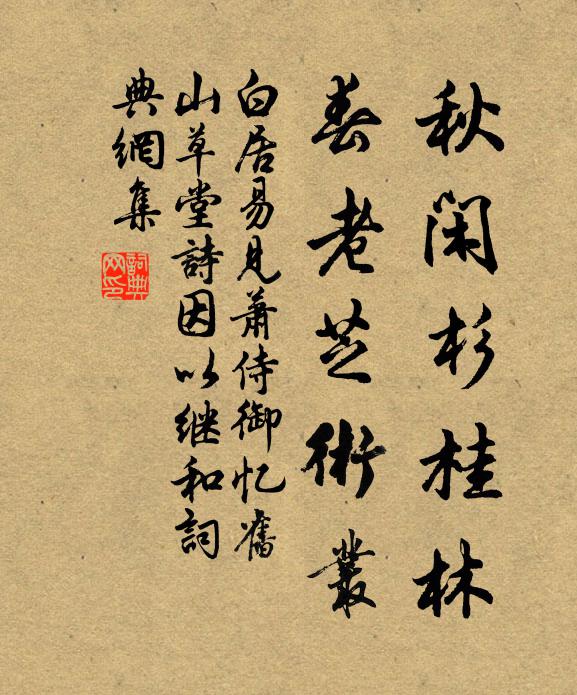 秋闲杉桂林
春老芝術叢
白居易見蕭侍御忆舊
山草堂詩因以继和詞
典網集
詞典
网印